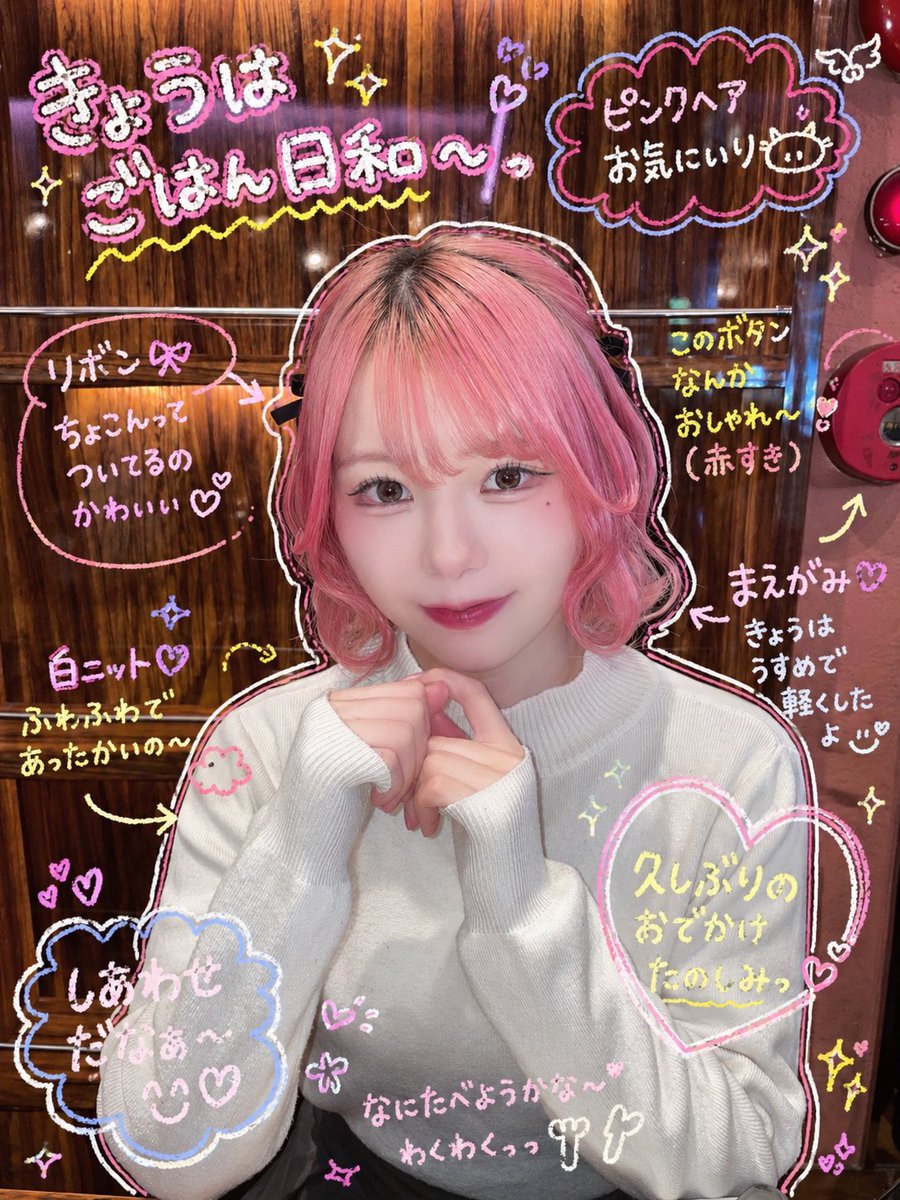 きょうは
ごはん日和〜っ
ピンクヘア
お気にいり
リボン
ちょこんって
ついてるの
かわいい
このボタン
なんか
おしゃれ〜
(赤すき)
まえがみ
きょうは
うすめで
軽くした
よ
白ニット
ふわふわで
あったかいの〜
久しぶりの
おでかけ
たのしみっ
しあわせ
だなぁ〜
なにたべようかな〜
わくわくっっ